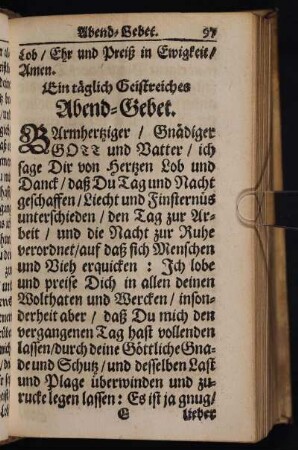 Abend-Gebet. 97
Lob / Ehr und Preiß in Ewigkeit /
Amen.
Ein täglich Geistreiches
Abend-Gebet.
BArmhertziger / Gnädiger
GOTT und Vatter / ich
sage Dir von Hertzen Lob und
Danck / daß Du Tag und Nacht
geschaffen / Liecht und Finsternüs
unterschieden / den Tag zur Ar-
beit / und die Nacht zur Ruhe
verordnet / auf daß sich Menschen
und Vieh erquicken : Ich lobe
und preise Dich in allen deinen
Wolthaten und Wercken / inson-
derheit aber / daß Du mich den
vergangenen Tag hast vollenden
lassen / durch deine Göttliche Gna-
de und Schutz / und desselben Last
und Plage überwinden und zu-
rucke legen lassen : Es ist ja gnug /
E lieber